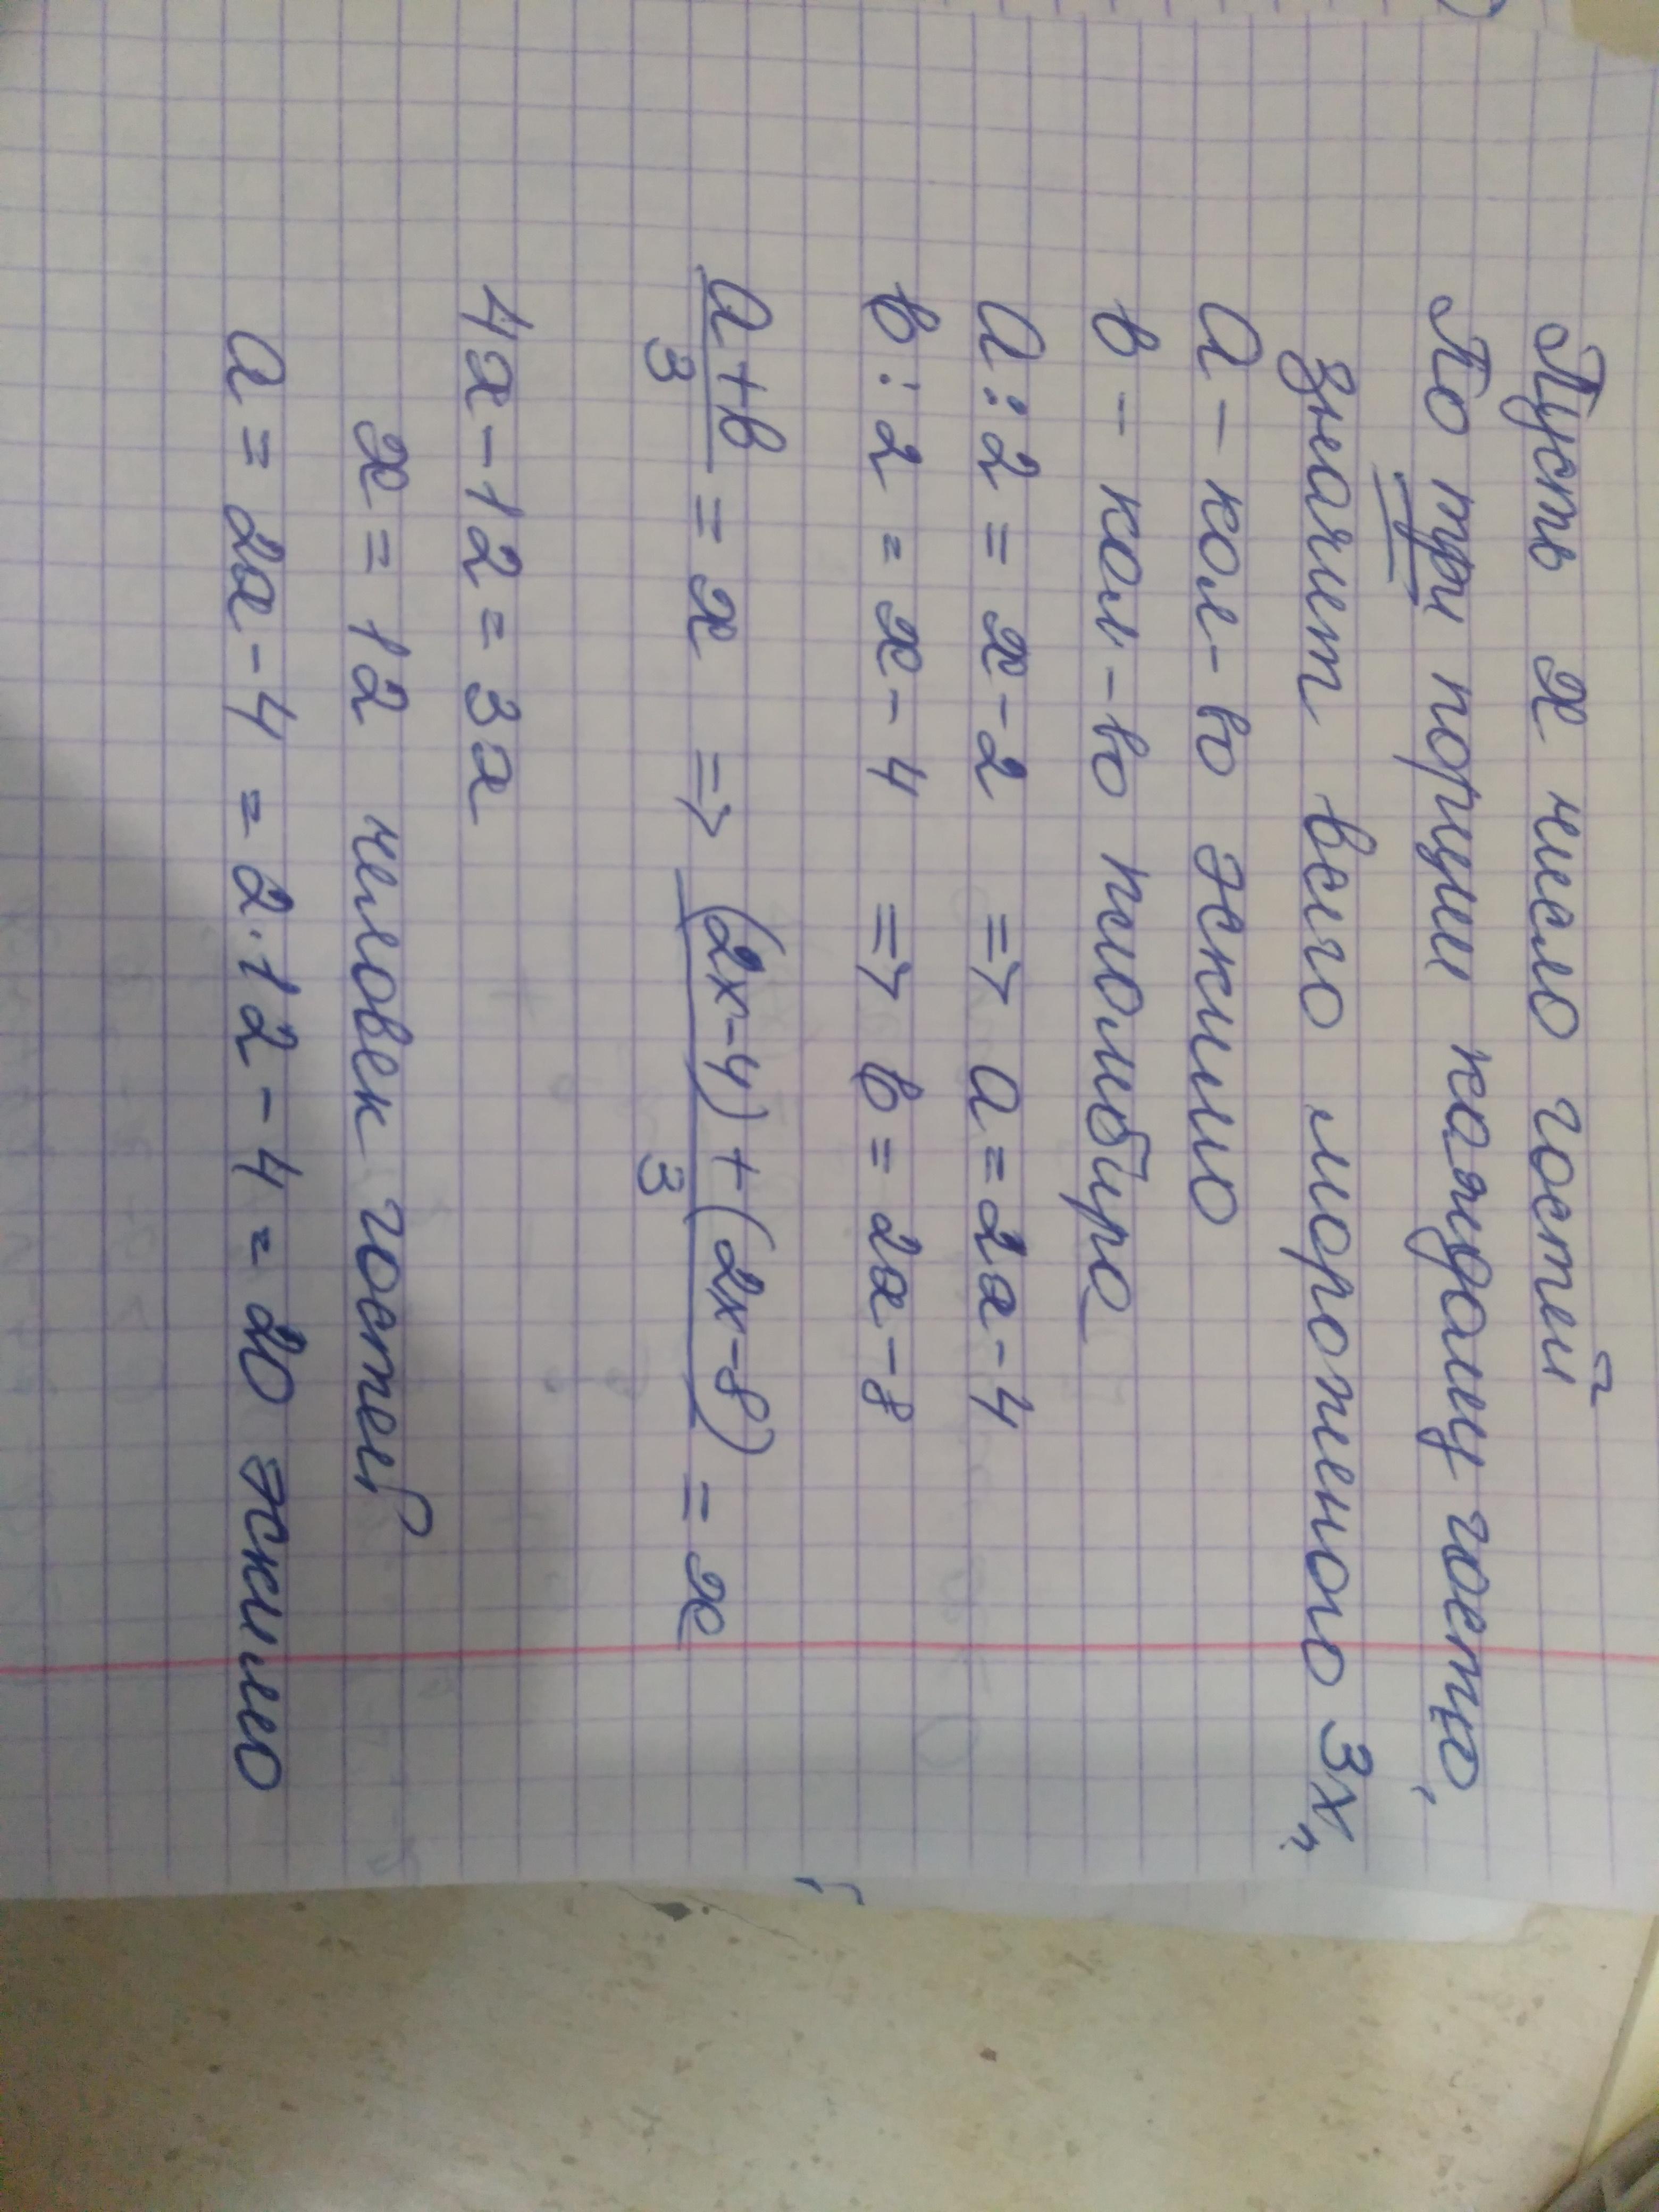 Пусть x число гостей
По три порции каждому гостю,
значит всего мороженого 3x,
a – кол-во эскимо
в – кол-во пломбира
a : 2 = x – 2 => a = 2x – 4
в : 2 = x – 4 => в = 2x – 8
(a + в)/3 = x => ((2x – 4) + (2x – 8))/3 = x
4x – 12 = 3x
x = 12 человек гостей
a = 2x – 4 = 2·12 – 4 = 20 эскимо